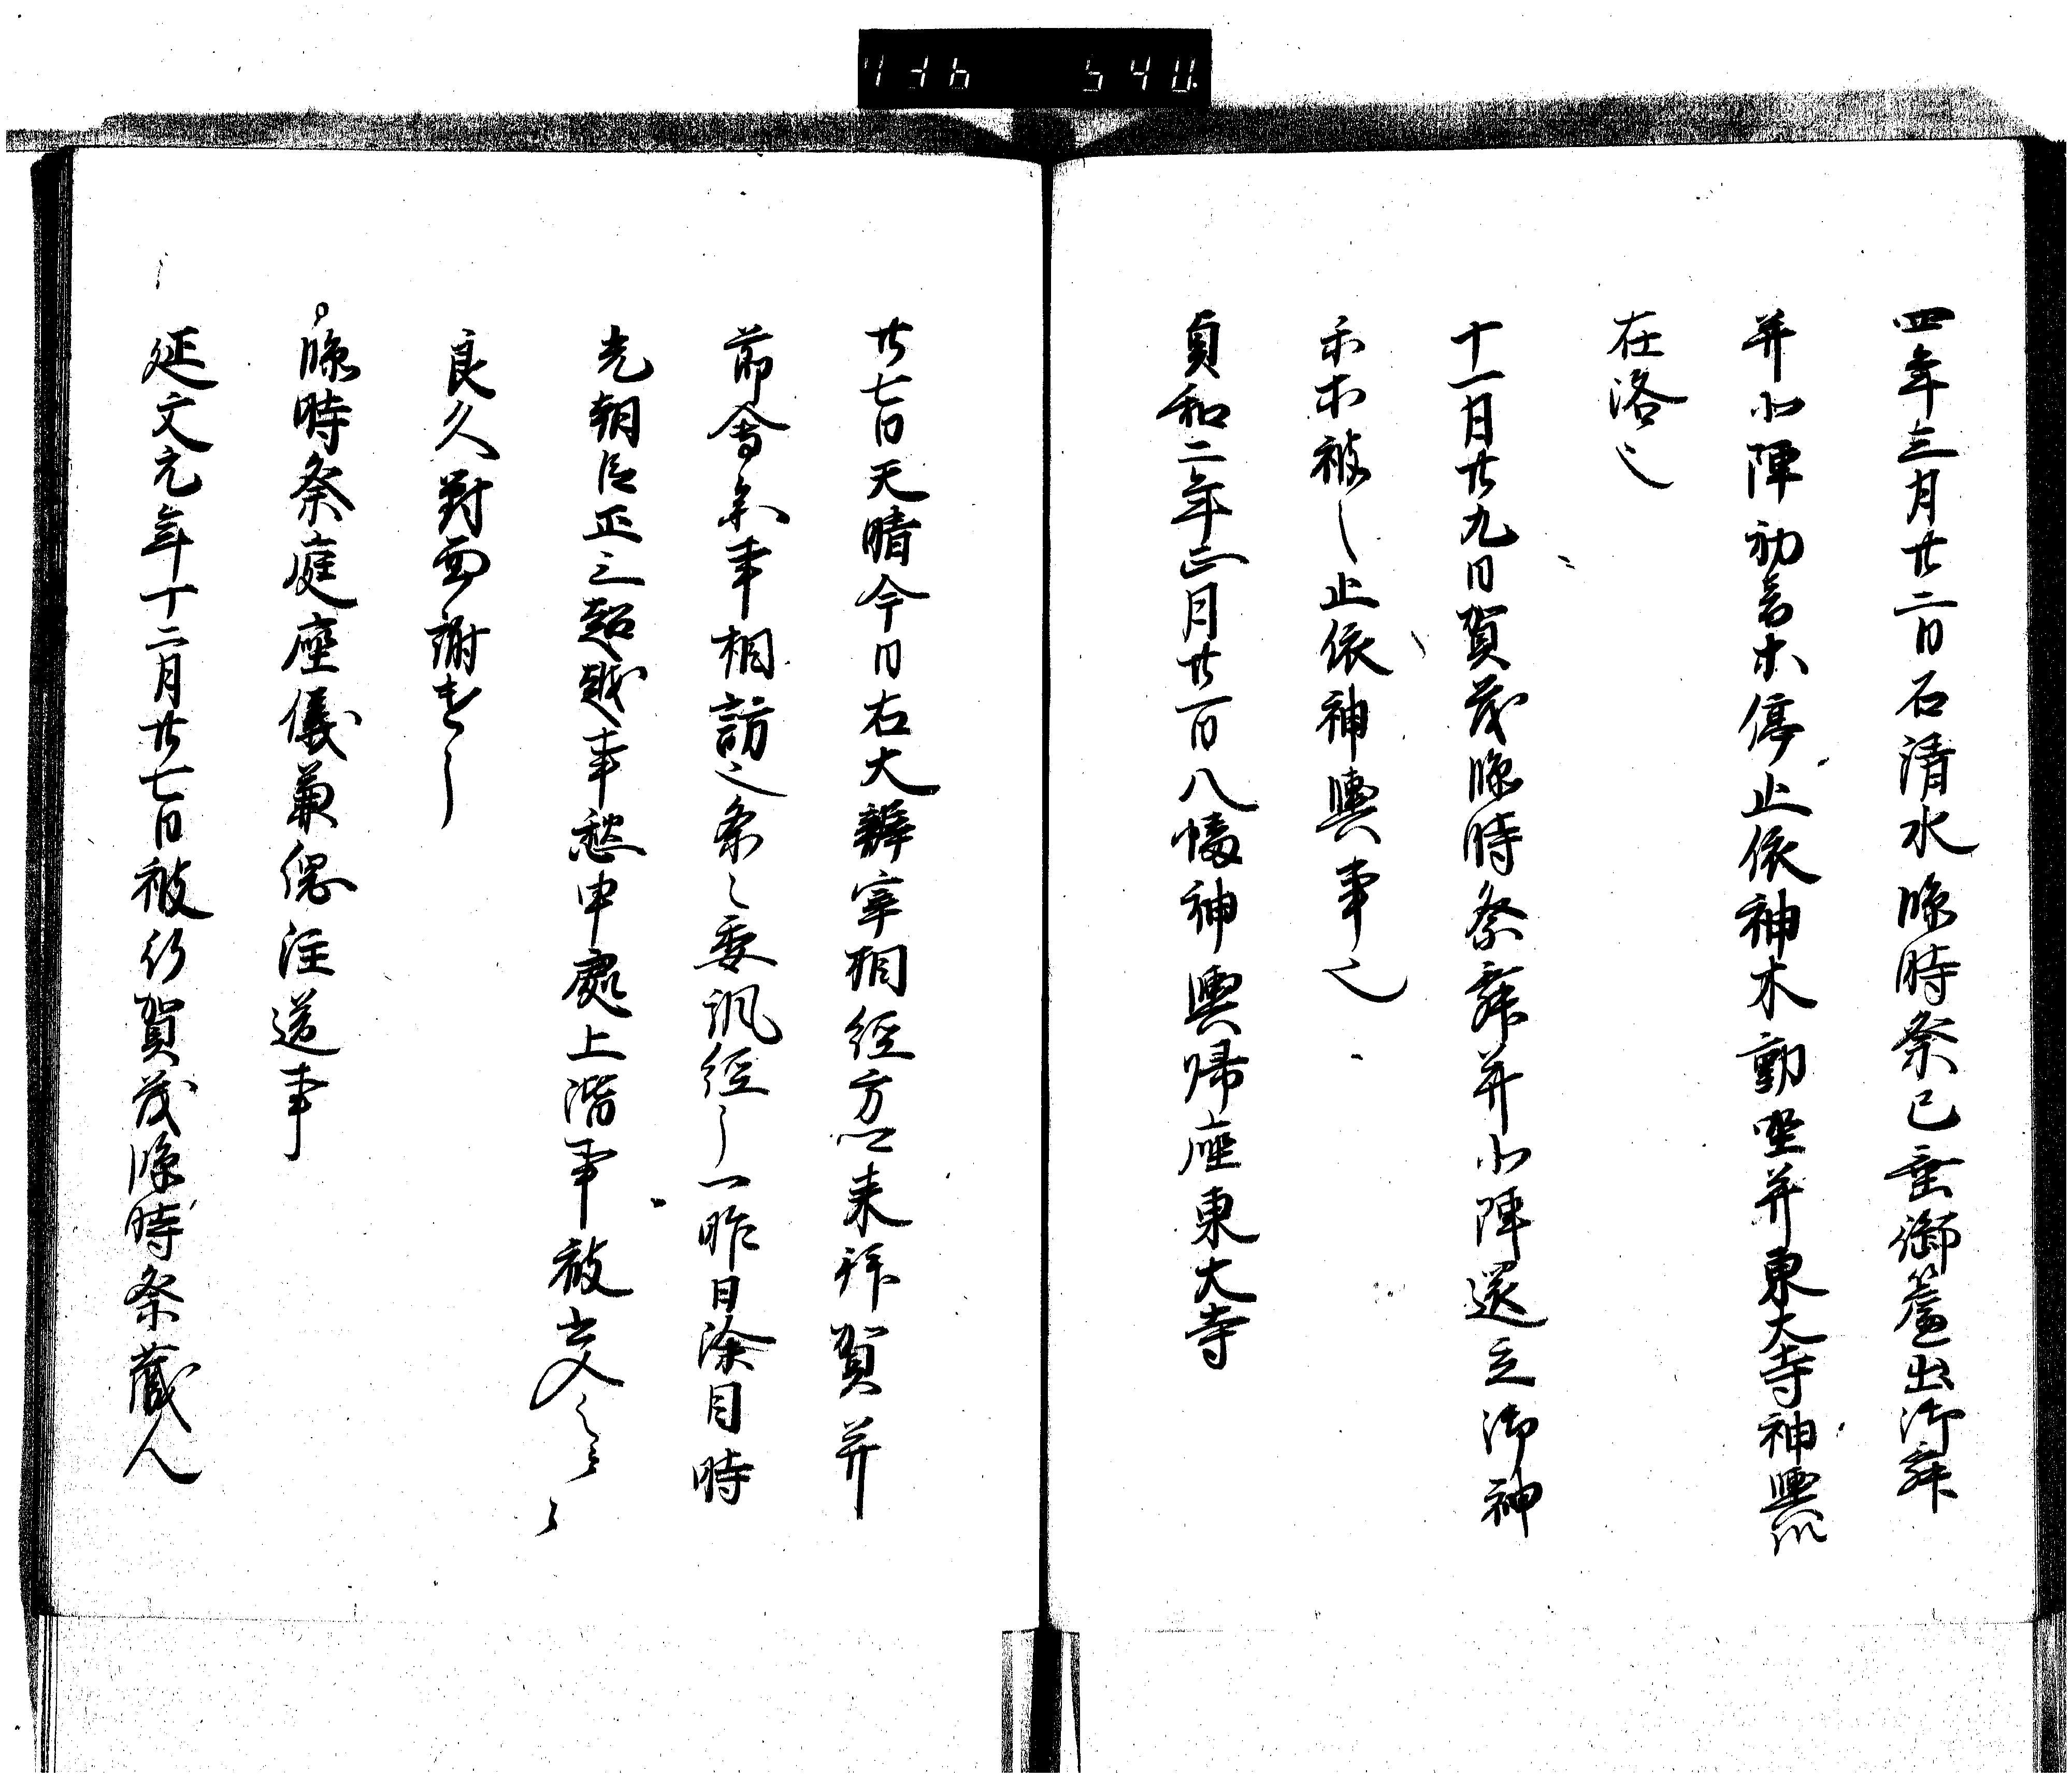 四年三月廿二日石清水臨時祭已垂御簾出御舞
并小陣初音木停止依神木動坐并東大寺神輿
在洛也
十一月廿九日賀茂臨時祭舞并小陣還立御神
示木被止依神輿事也
貞和二年正月廿一日八幡神輿帰座東大寺
廿七日天晴今日右大辨宰相経方以来拝賀并
節会参事相訪之条々委訊経一昨日除目時
光朝臣正三超越事愁申處上階事被
良久對面謝遣
臨時祭庭座儀兼偲注送事
延文元年十二月廿七日被行賀茂臨時祭蔵人